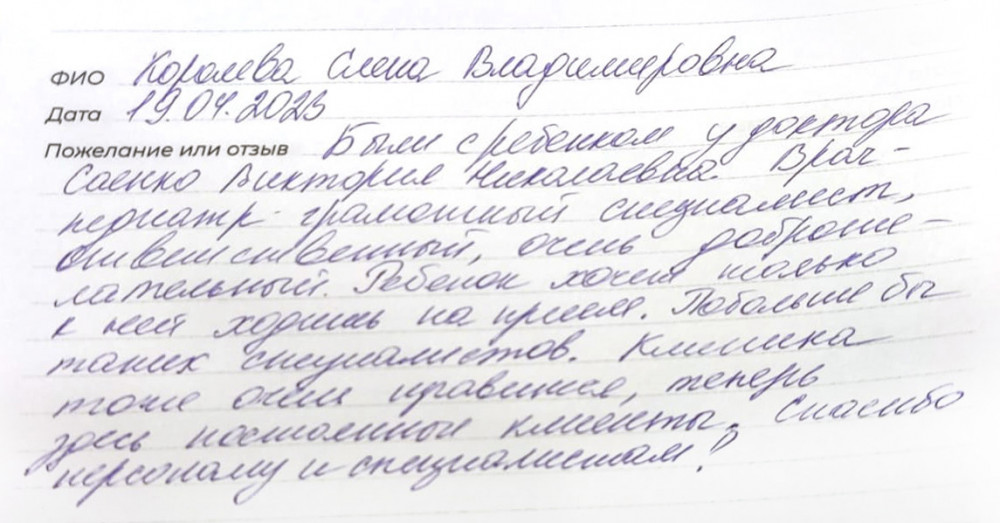 ФИО Королева Елена Владимировна
Дата 19.04.2023
Пожелание или отзыв Были с ребенком у доктора
Саенко Виктория Николаевна. Врач-
педиатр - грамотный специалист,
ответственный, очень доброже-
лательный. Ребенок хочет только
к ней ходить на прием. Побольше бы
таких специалистов. Клиника
тоже очень нравится, теперь
здесь постоянные клиенты. Спасибо
персоналу и специалистам!